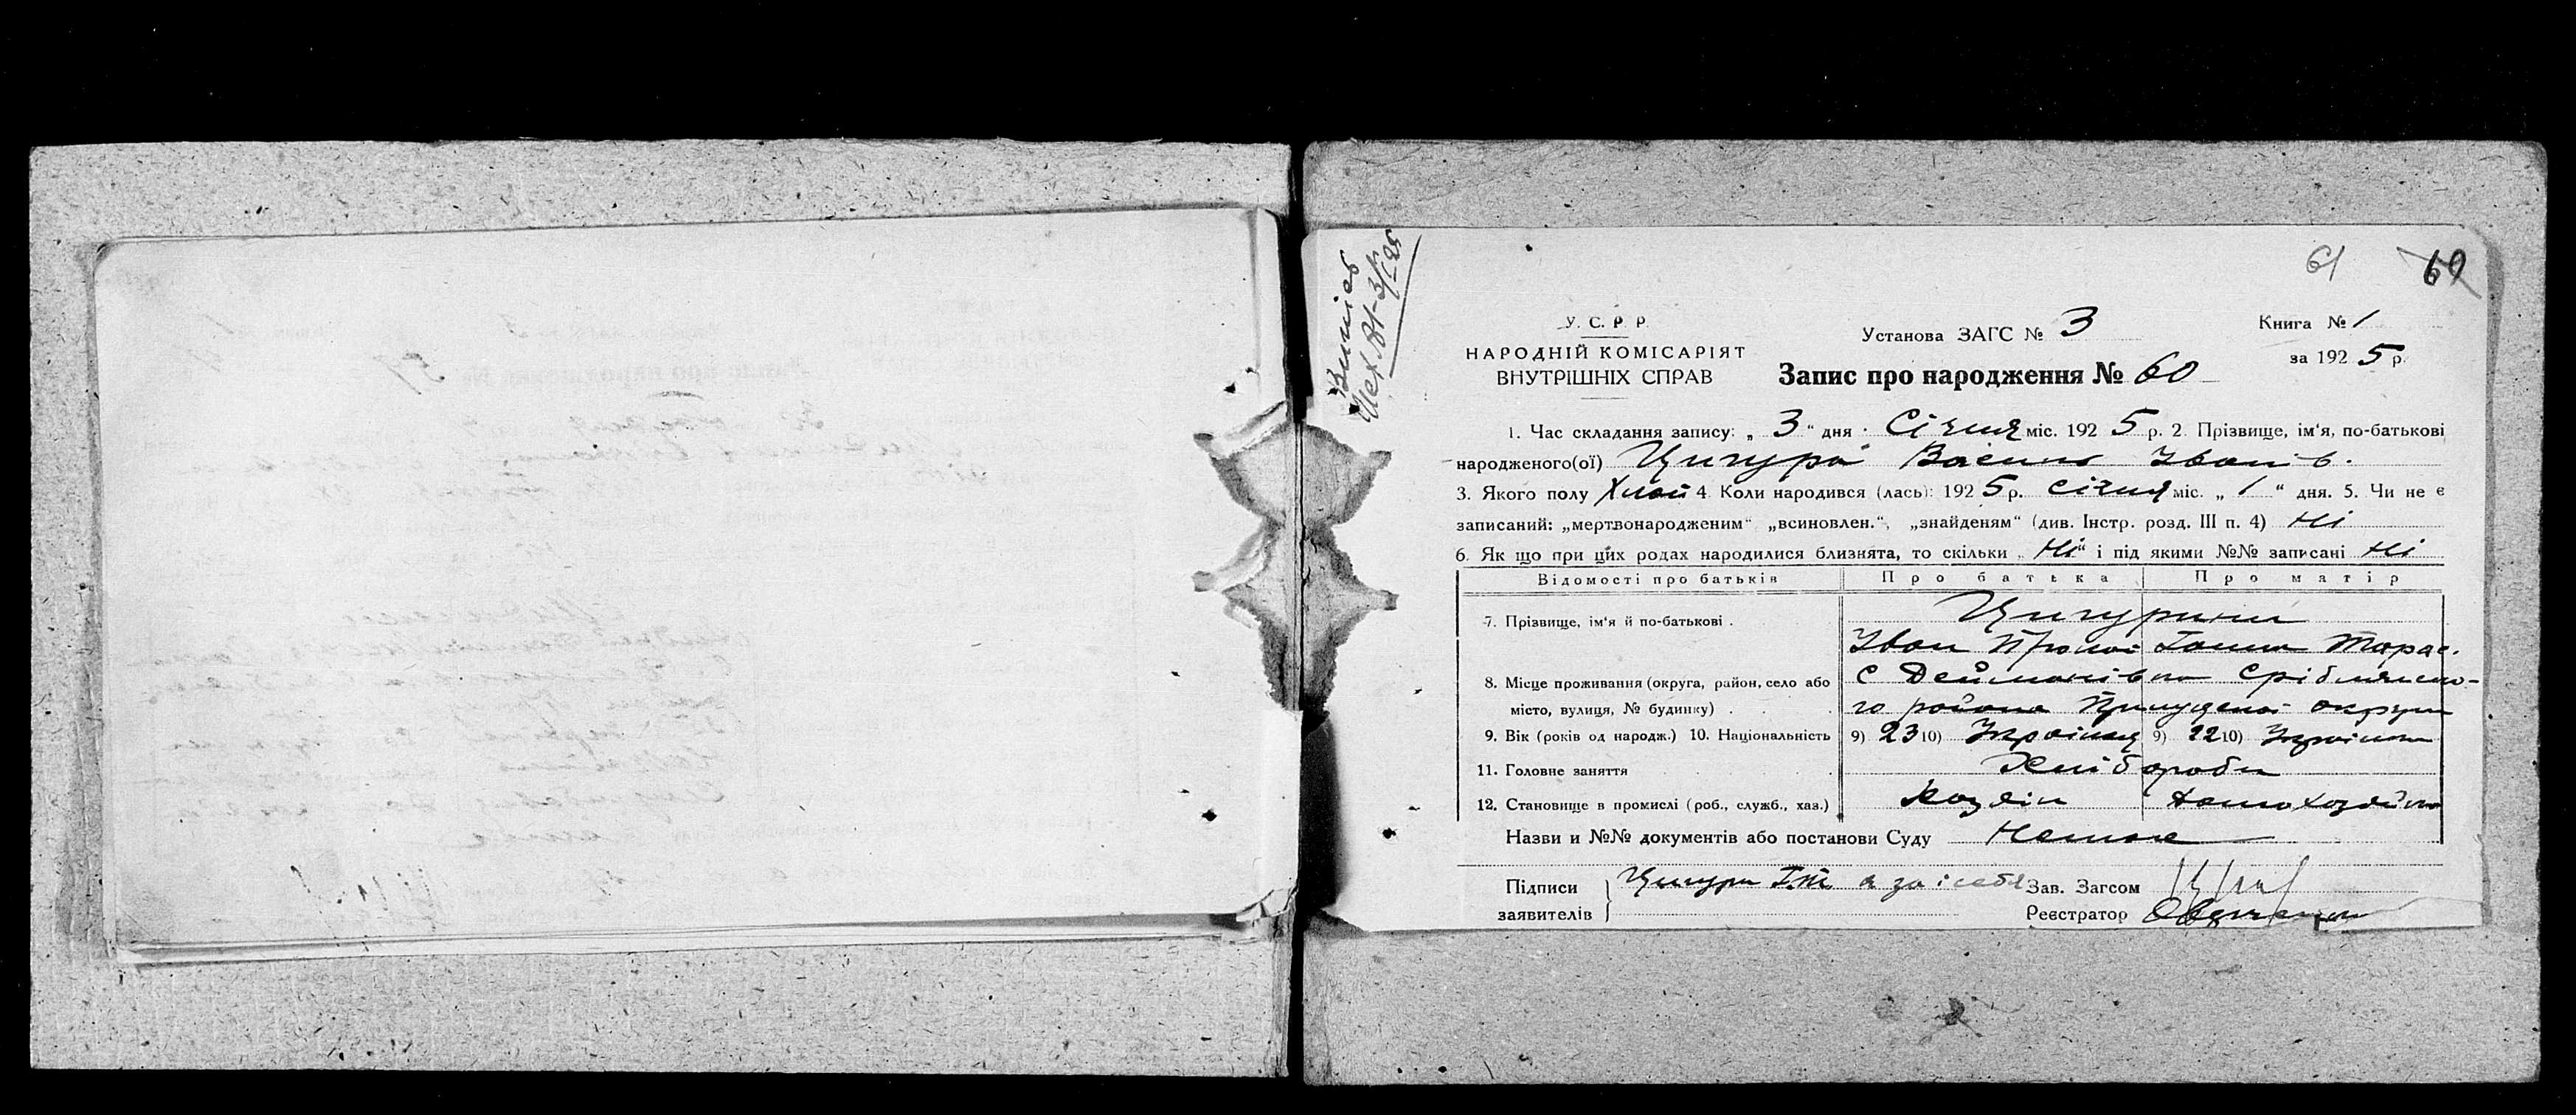 61 60
У. С. Р. Р.
НАРОДНІЙ КОМІСАРІЯТ
ВНУТРІШНІХ СПРАВ
Установа ЗАГС № 3
Запис про народження № 60
Книга № 1
за 1925 р.
1. Час складання запису: „3“ дня Січня міс. 1925 р. 2. Прізвище, ім'я, по-батькові
народженого(ої) Цигура Василь Іванів.
3. Якого полу Хлоп 4. Коли народився (лась): 1925 р. січня міс. „1“ дня. 5. Чи не є
записаний: „мертвонародженим“ „всиновлен.“, „знайденям“ (див. Інстр. розд. III п. 4) Ні
6. Як що при цих родах народилися близнята, то скільки „Ні“ і під якими №№ записані Ні
Відомості про батьків Про батька Про матір
7. Прізвище, ім'я й по-батькові . Цигурини
Іван Ганна Тарас.
8. Місце проживання (округа, район, село або с Дейманівка Срібнянсько-
місто, вулиця, № будинку) . го района Прилуцької округи
9. Вік (років од народж.) 10. Національність 9) 23 10) Українец 9) 22 10) Українка
11. Головне заняття Хлібороби
12. Становище в промислі (роб., служб., хаз.) Хозяін Домохозяйка
Назви и №№ документів або постанови Суду Немає
Підписи заявителів Цигура а за і себя
Зав. Загсом
Реєстратор